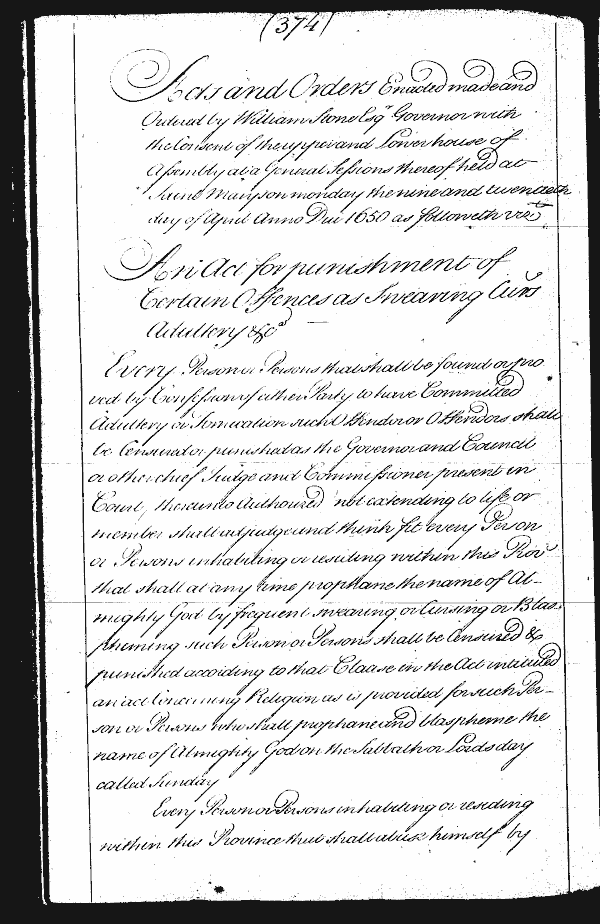 (374)
Acts and Orders Enacted made and
Ordered by William Stone Esqr Governor with
the Consent of the upper and Lower house of
Assembly at a General Sessions thereof held at
Saint Marys on monday the nine and twentieth
day of April Anno Dni 1650 as followeth vizt
An Act for punishment of
Certain Offences as Swearing Curs
Adultery &ca
Every Person or Persons that shall be found or pro
ved by Confession of either Party to have Committed
Adultery or Fornication such Offender or Offendors shall
be Censured or punished as the Governor and Council
or other chief Judge and Commissioner present in
Court, thereunto Authorized not extending to life or
member shall adjudge and think fit every Person
or Persons inhabiting or residing within this Prov
that shall at any time prophane the name of Al-
mighty God by frequent swearing or Cursing or Blas-
pheming such Person or Persons shall be Censured &
punished according to that Clause in the Act intituled
an act Concerning Religion as is provided for such Per-
son or Persons who shall prophane and blaspheme the
name of Almighty God on the Sabbath or Lords day
called Sunday
Every Person or Persons inhabiting or residing
within this Province that shall abuse himself by